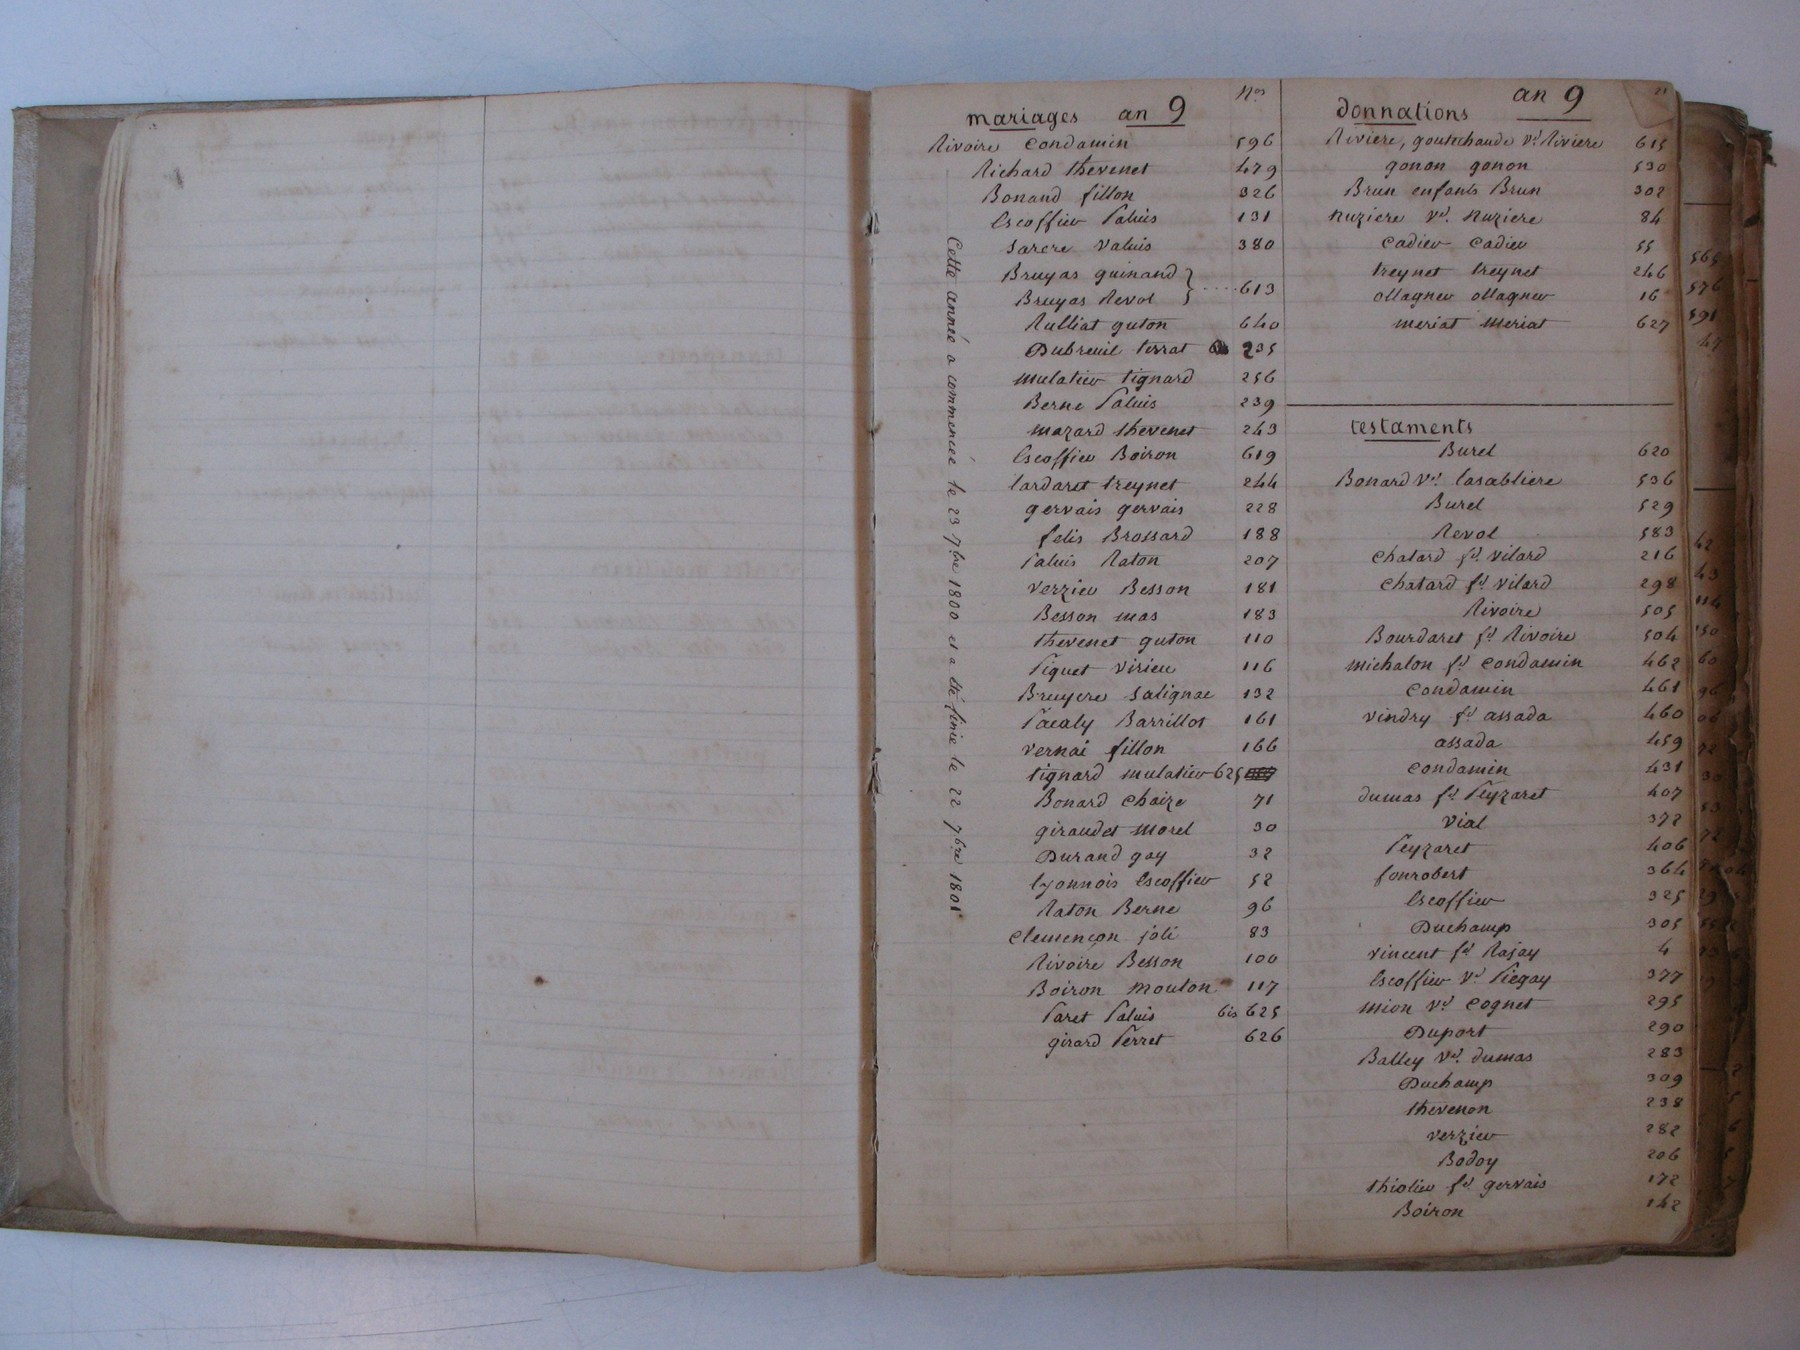 mariages an 9
Nos
Rivoire Condamin 596
Richard thevenet 479
Bonand fillon 326
Escoffier Paluis 131
Sarere Valuis 380
Bruyas guinand
Bruyas Revol } .... 613
Rulliat guton 640
Dubreuil terrat 235
mulatier tignard 256
Berne Paluis 239
mazard thevenet 243
Escoffier Boiron 619
tardaret treynet 244
gervais gervais 228
felis Brossard 188
Paluis Raton 207
verzieu Besson 181
Besson mas 183
thevenet guton 110
Piguet virieu 116
Bruyere Salignac 132
Pacaly Barrillot 161
vernai fillon 166
tignard mulatier 625
Bonard Chaize 71
giraudet morel 30
Durand gay 32
lyonnois Escoffier 52
Raton Berne 96
Clemençon joli 83
Rivoire Besson 100
Boiron Mouton 117
Paret Paluis bis 625
girard Perret 626
Cette année a commencée le 23 7bre 1800 et a été finie le 22 7bre 1801
donnations an 9
21
Riviere, goutechaude Ve. Riviere 615
gonon gonon 530
Brun enfants Brun 302
nuziere Ve. nuziere 84
Cadier Cadier 55
treynet treynet 246
ollagner ollagner 16
meriat meriat 627
testaments
Burel 620
Bonard Ve. Casabliere 536
Burel 529
Revol 583
Chatard fe. vilard 216
Chatard fe. vilard 298
Rivoire 505
Bourdaret fe. Rivoire 504
michalon fe. Condamin 462
Condamin 461
vindry fe. assada 460
assada 459
Condamin 431
dumas fe. Peyzaret 407
vial 372
Peyzaret 406
fonrobert 364
Escoffier 325
Duchamp 305
vincent fe. Rajay 4
Escoffier Ve. Piegay 377
mion Ve. Cognet 295
Duport 290
Balley Ve. dumas 283
Duchamp 309
thevenon 238
verzieu 282
Bodoy 206
thiolier fe. gervais 172
Boiron 142
565
576
591
47